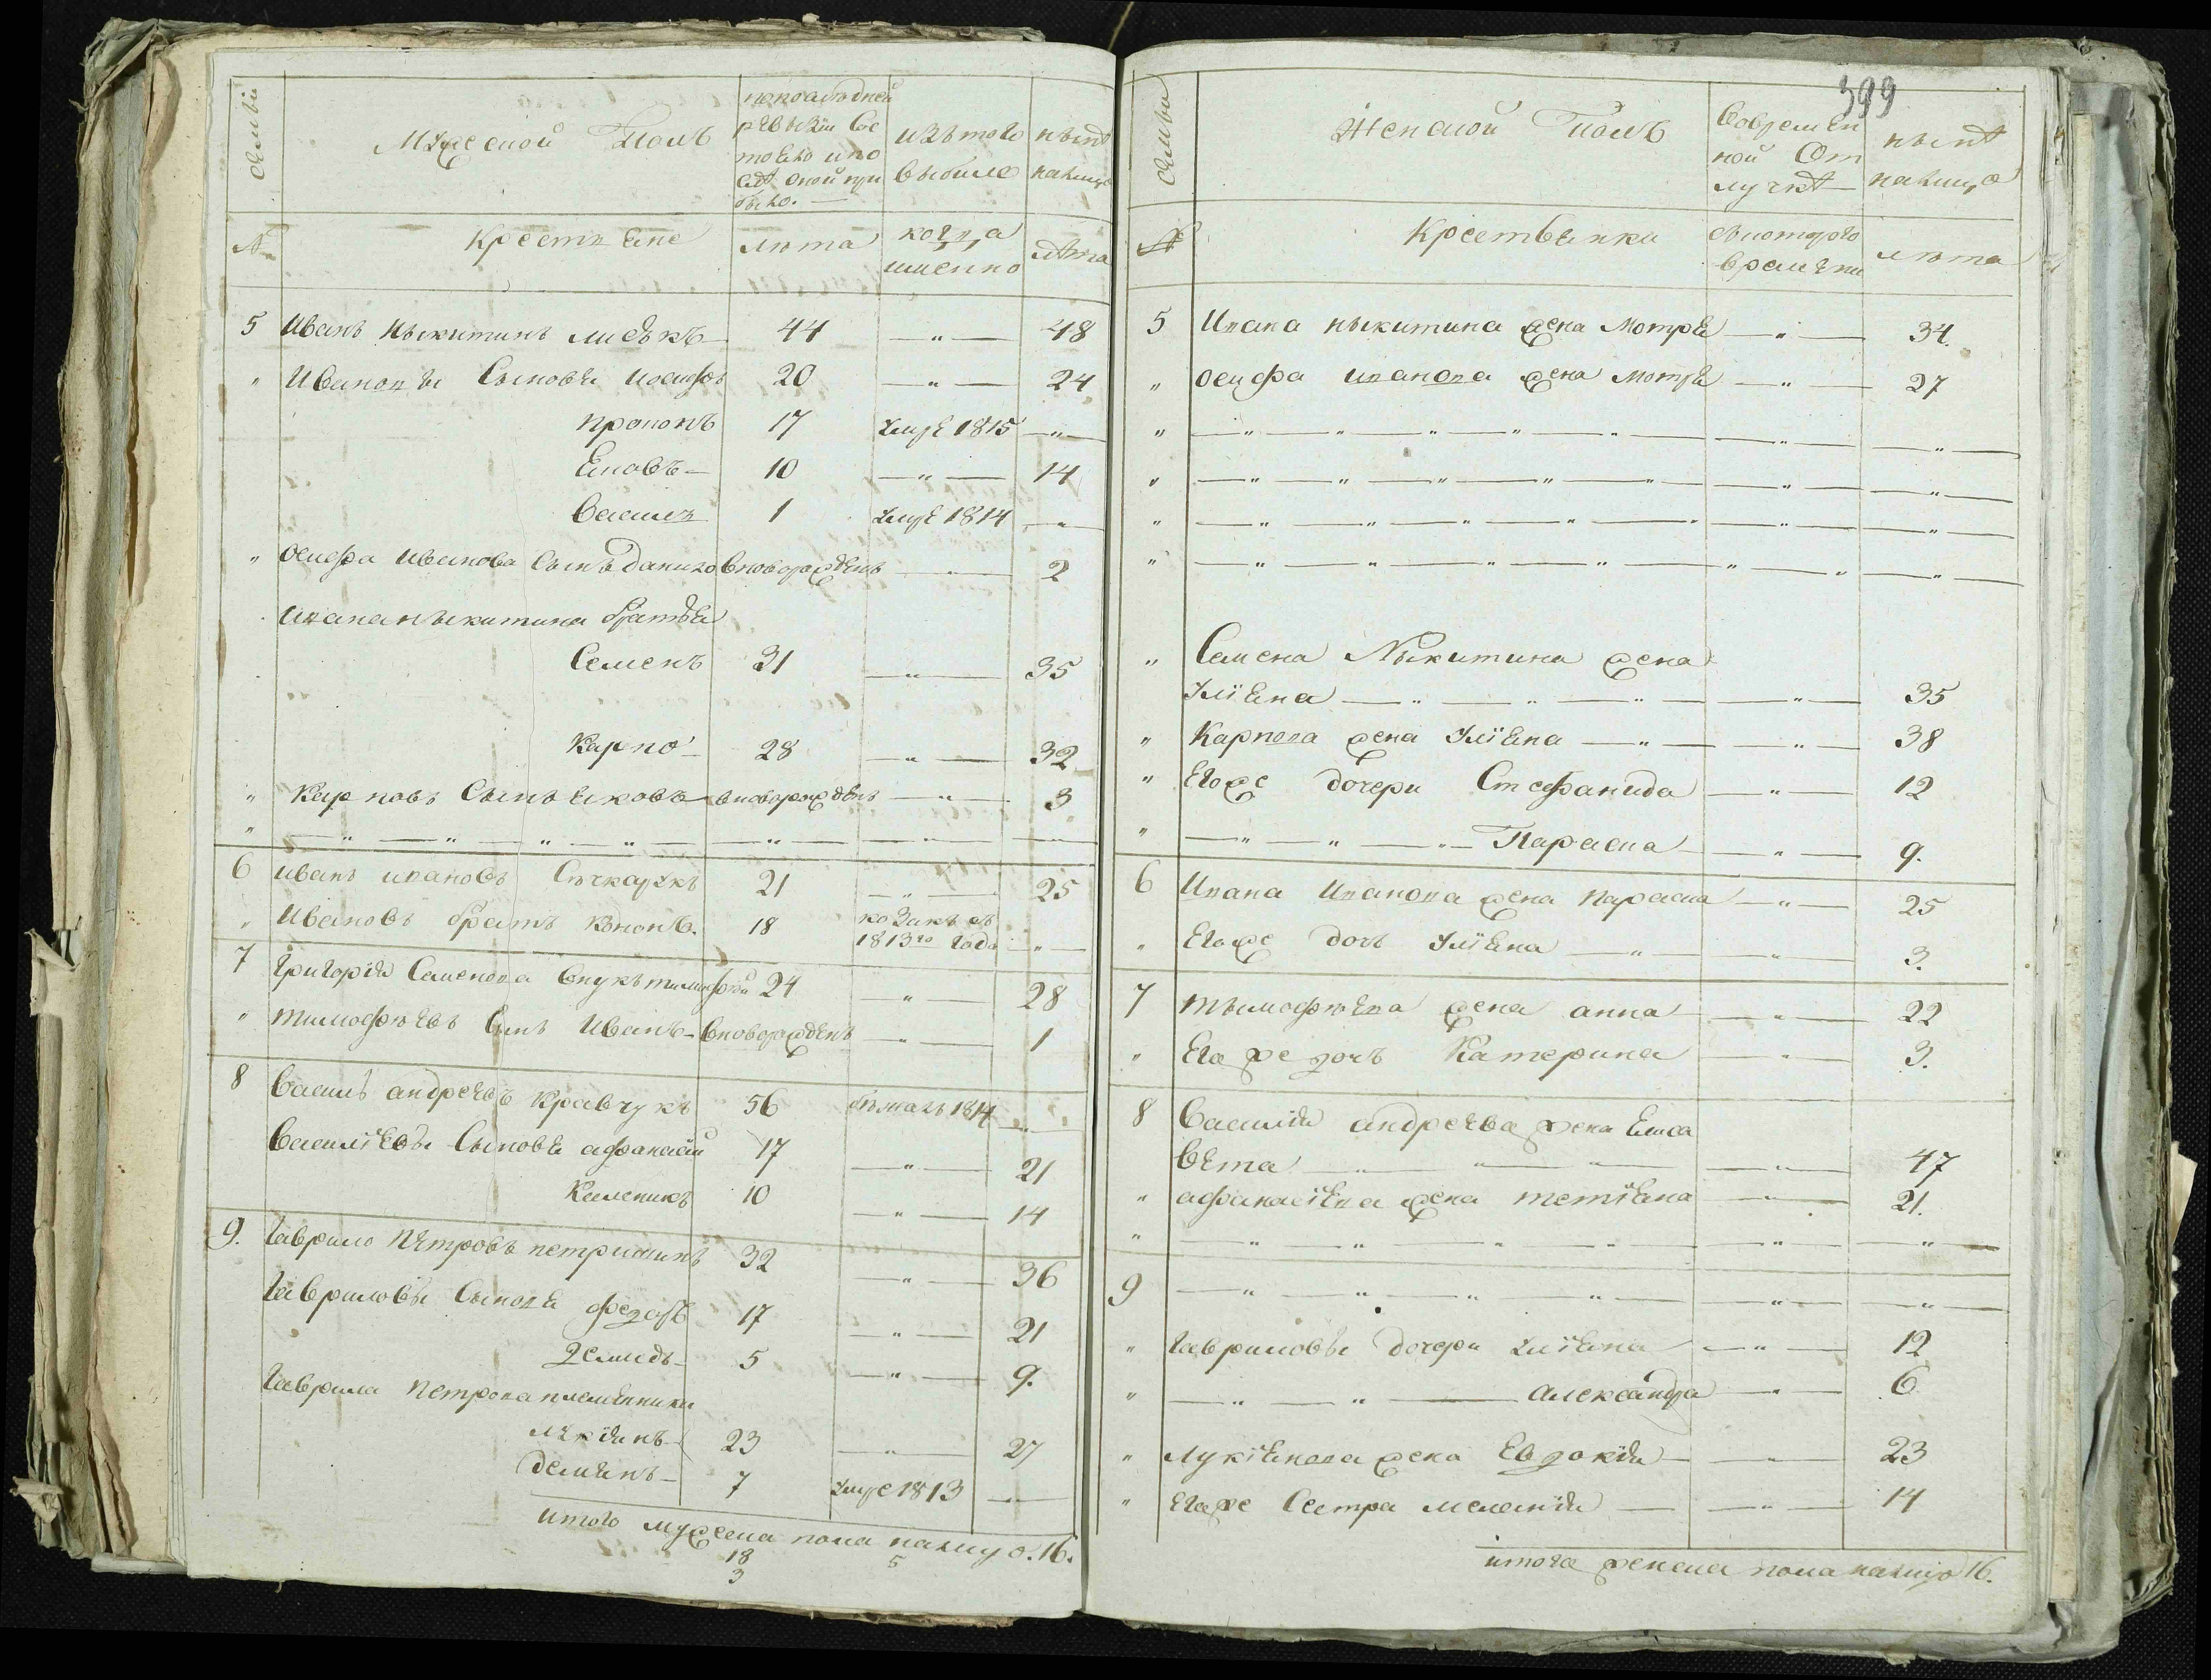 семьи
Мужеской Полъ
попоследней
ревизіи сос
тояло ипо
слѣ оной при
было.
изътого
выбыло
нынѣ
налицо
№
Крестьяне
лѣта
когда
именно
лѣта
5 Иванъ Никитинъ 44 — " — 48
" Ивановы Сыновья Иосифъ 20 — " — 24
Прокопъ 17 умре 1815 — " —
Яковъ 10 — " — 14
Василь 1 умре 1814 — " —
" Осифа Иванова Сынъ Данило вноворожденъ — " — 2
Ивана Никитина братья
Семенъ 31 — " — 35
Карпо 28 — " — 32
" Карповъ Сынъ Яковъ вноворожденъ — " — 3
" — " — " — " — " — " — " —
6 иванъ ивановъ 21 — " — 25
" Ивановъ братъ Кононъ. 18 козакъ съ
1813го года — " —
7 Григорія Семенова внукъ тимофей 24 — " — 28
" тимофѣевъ Сынъ Иванъ вноворожденъ — " — 1
8 Василь андреевъ Кравчукъ 56 1814 — " —
Василіевы Сыновья афанасій 17 — " — 21
Каленикъ 10 — " — 14
9. Гаврило Петровъ 32 — " — 36
Гавриловы Сыновья федоръ 17 — " — 21
Демидъ 5 — " — 9.
Гаврила Петрова племянники
Лукіянъ 23 — " — 27
Демянъ 7 умре 1813 — " —
итого мужеска пола налицо. 16.
18 5
3
399
семьи
Женской Полъ
Вовремен
ной От
лучкѣ
нынѣ
налицо
№
Крестьянки
скоторого
времени
лѣта
5 Ивана никитина жена Мотря — " — 34.
" Осифа иванова жена Мотря — " — 27
" — " — " — " — " — " — " — " —
" — " — " — " — " — " — " — " —
" — " — " — " — " — " — " — " —
" — " — " — " — " — " — " — " —
" Семена Никитина жена
Уліяна — " — " — " — " — 35
" Карпова жена Уліяна — " — " — 38
" Егоже дочери Стефанида — " — 12
" — " — " — " — Параска — " — 9.
6 Ивана Иванова жена Параска — " — 25
" Егоже дочь Уліяна — " — " — 3.
7 тимофѣева жена анна — " — 22
" Егоже дочь Катерина — " — 3.
8 Василія андреева жена Елиса
вета — " — " — " — " — 47
" афанасіева жена тетіяна — " — 21.
" — " — " — " — " — " — " —
9 — " — " — " — " — " — " —
" Гавриловы дочери Уліяна — " — 12
" — " — " — Александра — " — 6
" Лукіянова жена Евдокія — " — 23
" Егоже Сестра Меланія — " — 14
итого женска пола налицо 16.